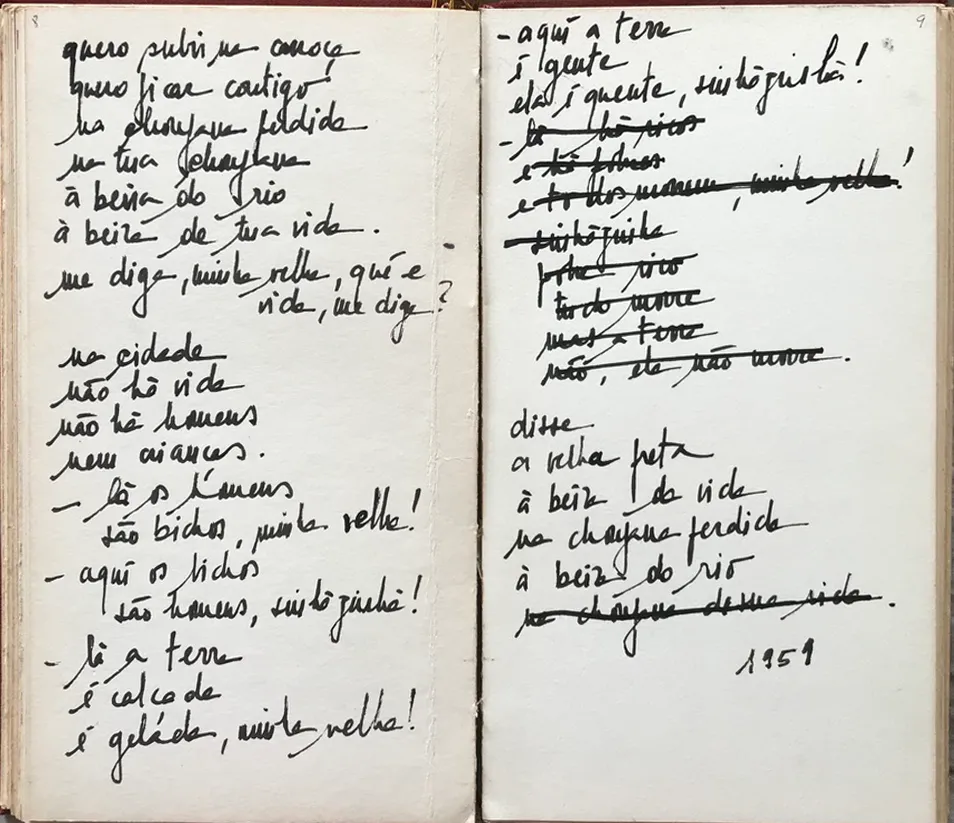 8
quero subir na carroça
quero ficar contigo
na choupana perdida
na tua choupana
à beira do rio
à beira de tua vida.
me diga, minha velha, quê e
vida, me diga?
na cidade
não há vida
não há homens
nem crianças.
- lá os homens
são bichos, minha velha!
- aqui os bichos
são homens, sinhôzinhô!
- lá a terra
é calçada
é gelada, minha velha!
9
- aquí a terra
é gente
ela é quente, sinhôzinhô!
- lá há ricos
e há pobres
e todos morrem, minha velha!
- sinhôzinho
pobre rico
tudo morre
mas a terra
não, ela não morre.
disse
a velha preta
à beira da vida
na choupana perdida
à beira do rio
na choupana de sua vida.
1959